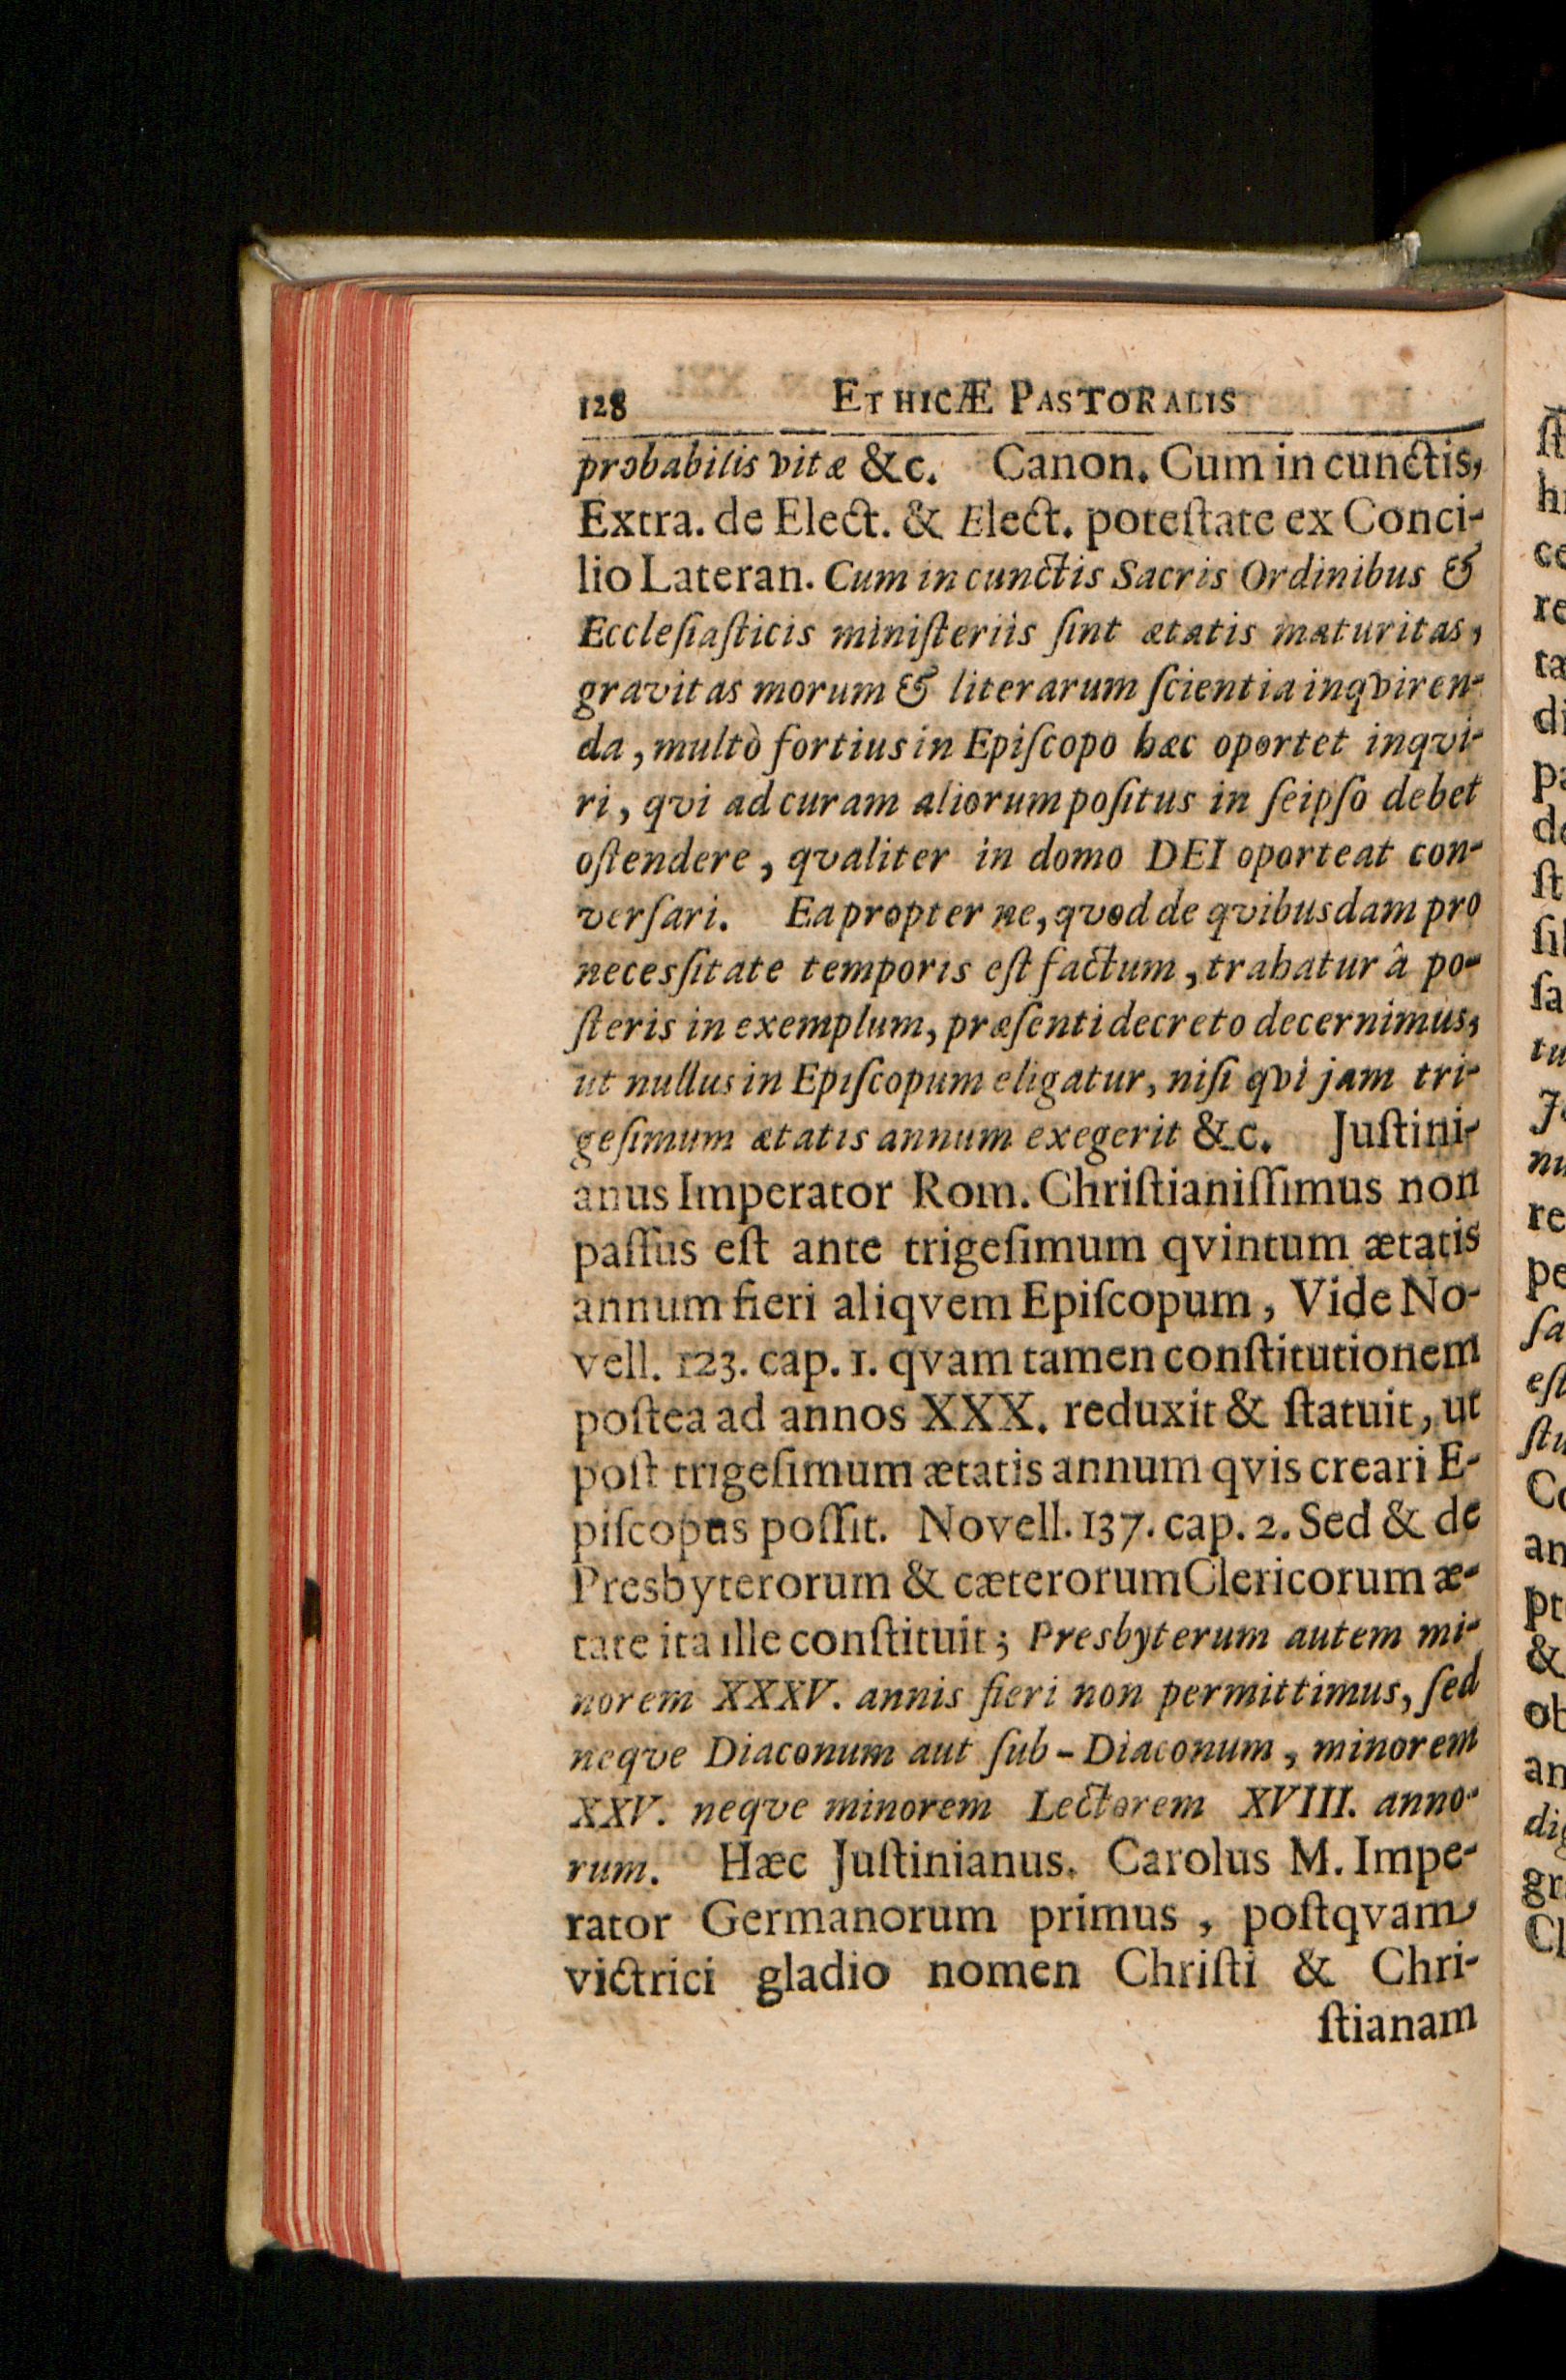 128 ETHICÆ PASTORALIS
probabilis vitæ &c. Canon. Cum in cunctis,
Extra. de Elect. & Elect. poteſtate ex Conci-
lio Lateran. Cum in cunctis Sacris Ordinibus &
Eccleſiaſticis miniſteriis ſint ætatis maturitas,
gravitas morum & literarum ſcientia inqviren-
da, multò fortius in Epiſcopo hæc oportet inqvi-
ri, qvi ad curam aliorum poſitus in ſeipſo debet
oſtendere, qvaliter in domo DEI oporteat con-
verſari. Eapropter ne, qvod de qvibusdam pro
necesſitate temporis eſt factum, trahatur â po-
ſteris in exemplum, præſenti decreto decernimus,
ut nullus in Epiſcopum eligatur, niſi qvi jam tri-
geſimum ætatis annum exegerit &c. Juſtini-
anus Imperator Rom. Chriſtianiſſimus non
paſſus eſt ante trigeſimum qvintum ætatis
annum fieri aliqvem Epiſcopum, Vide No-
vell. 123. cap. 1. qvam tamen conſtitutionem
poſtea ad annos XXX. reduxit & ſtatuit, ut
poſt trigeſimum ætatis annum qvis creari E-
piſcopus poſſit. Novell. 137. cap. 2. Sed & de
Presbyterorum & cæterorum Clericorum æ-
tate ita ille conſtituit; Presbyterum autem mi-
norem XXXV. annis fieri non permittimus, ſed
neqve Diaconum aut ſub-Diaconum, minorem
XXV. neqve minorem Lectorem XVIII. anno-
rum. Hæc Juſtinianus. Carolus M. Impe-
rator Germanorum primus, poſtqvam
victrici gladio nomen Chriſti & Chri-
ſtianam